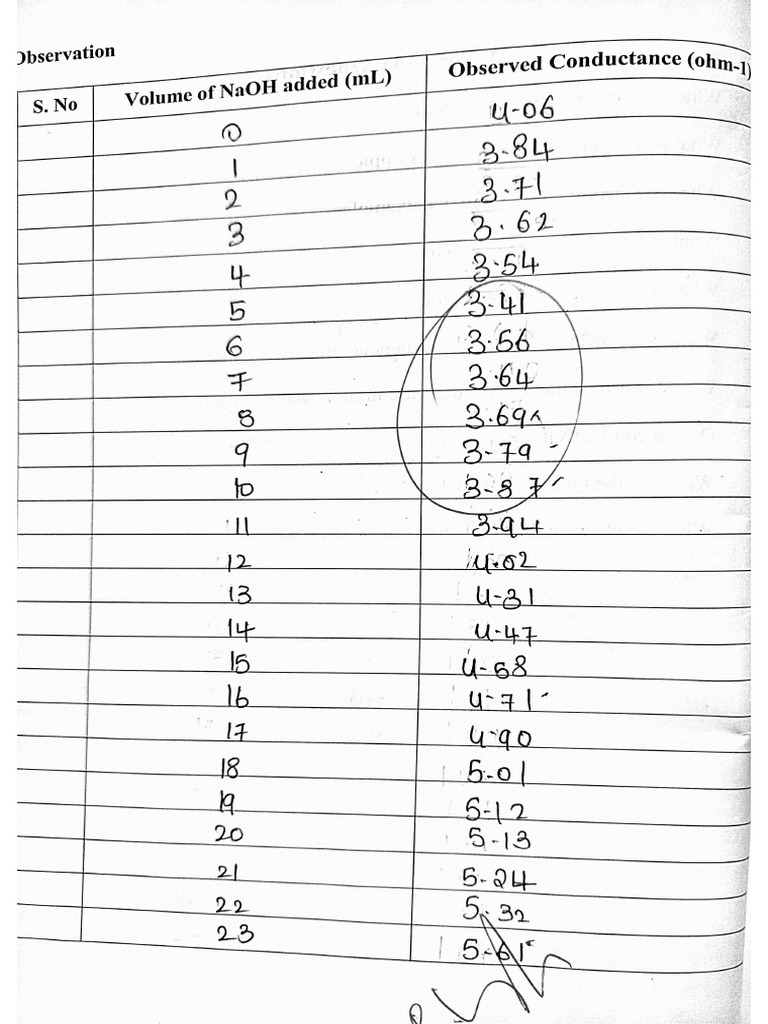 Observation
S. No Volume of NaOH added (mL) Observed Conductance (ohm-1)
0 4-06
1 3-84
2 3.71
3 3.62
4 3.54
5 3.41
6 3.56
7 3.64
8 3.69
9 3-79
10 3-87
11 3.94
12 4.02
13 4-31
14 4-47
15 4-68
16 4-71
17 4-90
18 5-01
19 5-12
20 5-13
21 5-24
22 5.32
23 5-61